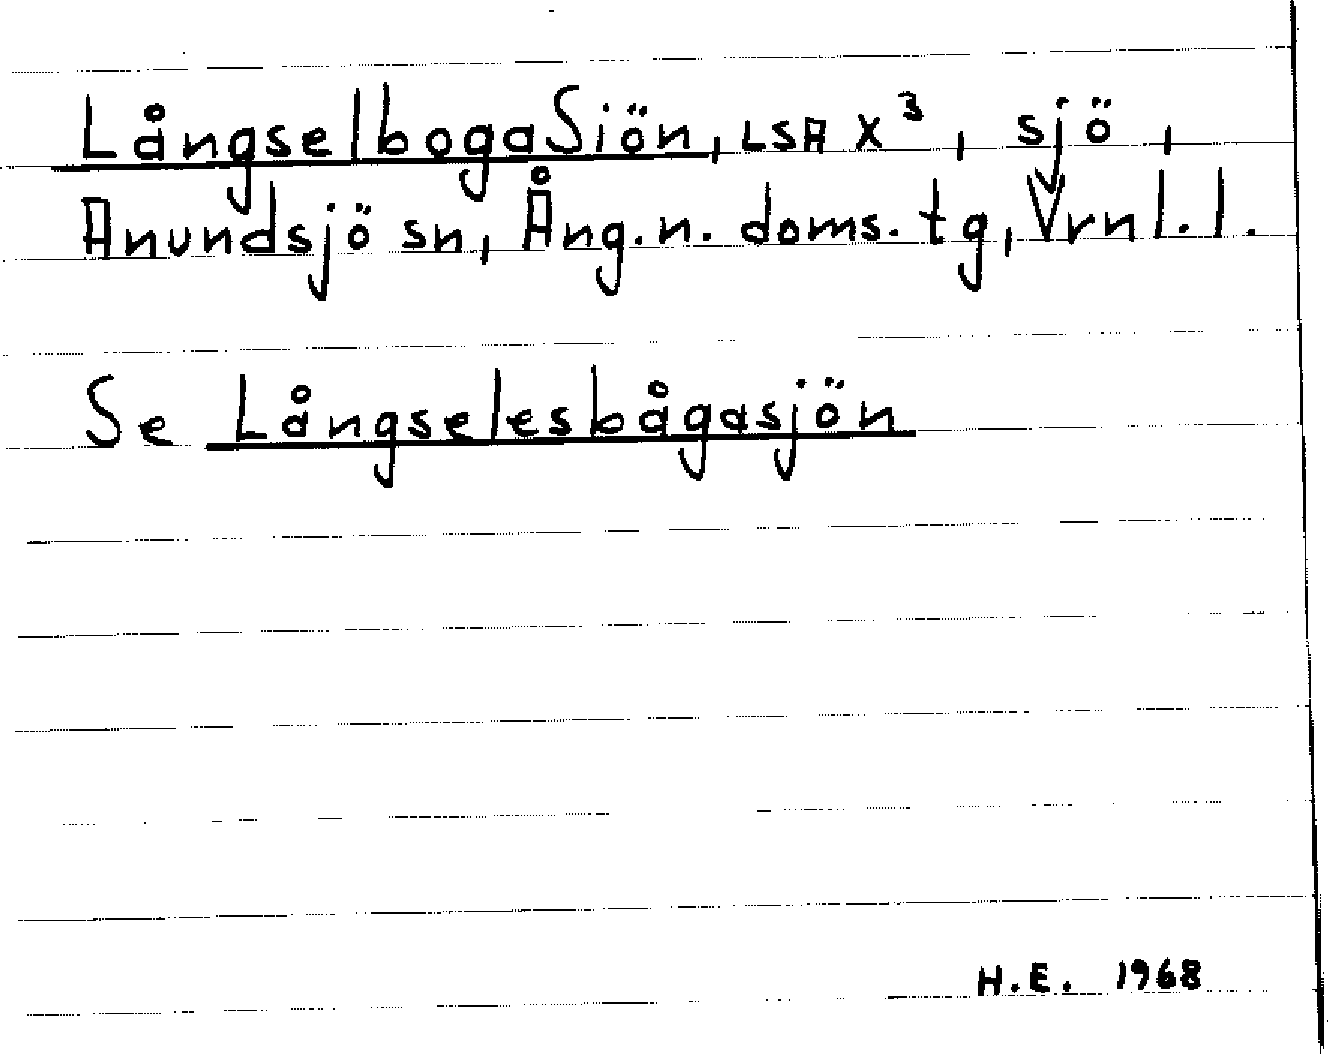 LångselbogaSiön, LSA X³, sjö,
Anundsjö sn, Ång. n. doms. tg, Vrnl. l.
Se Långselesbågasjön
H.E. 1968